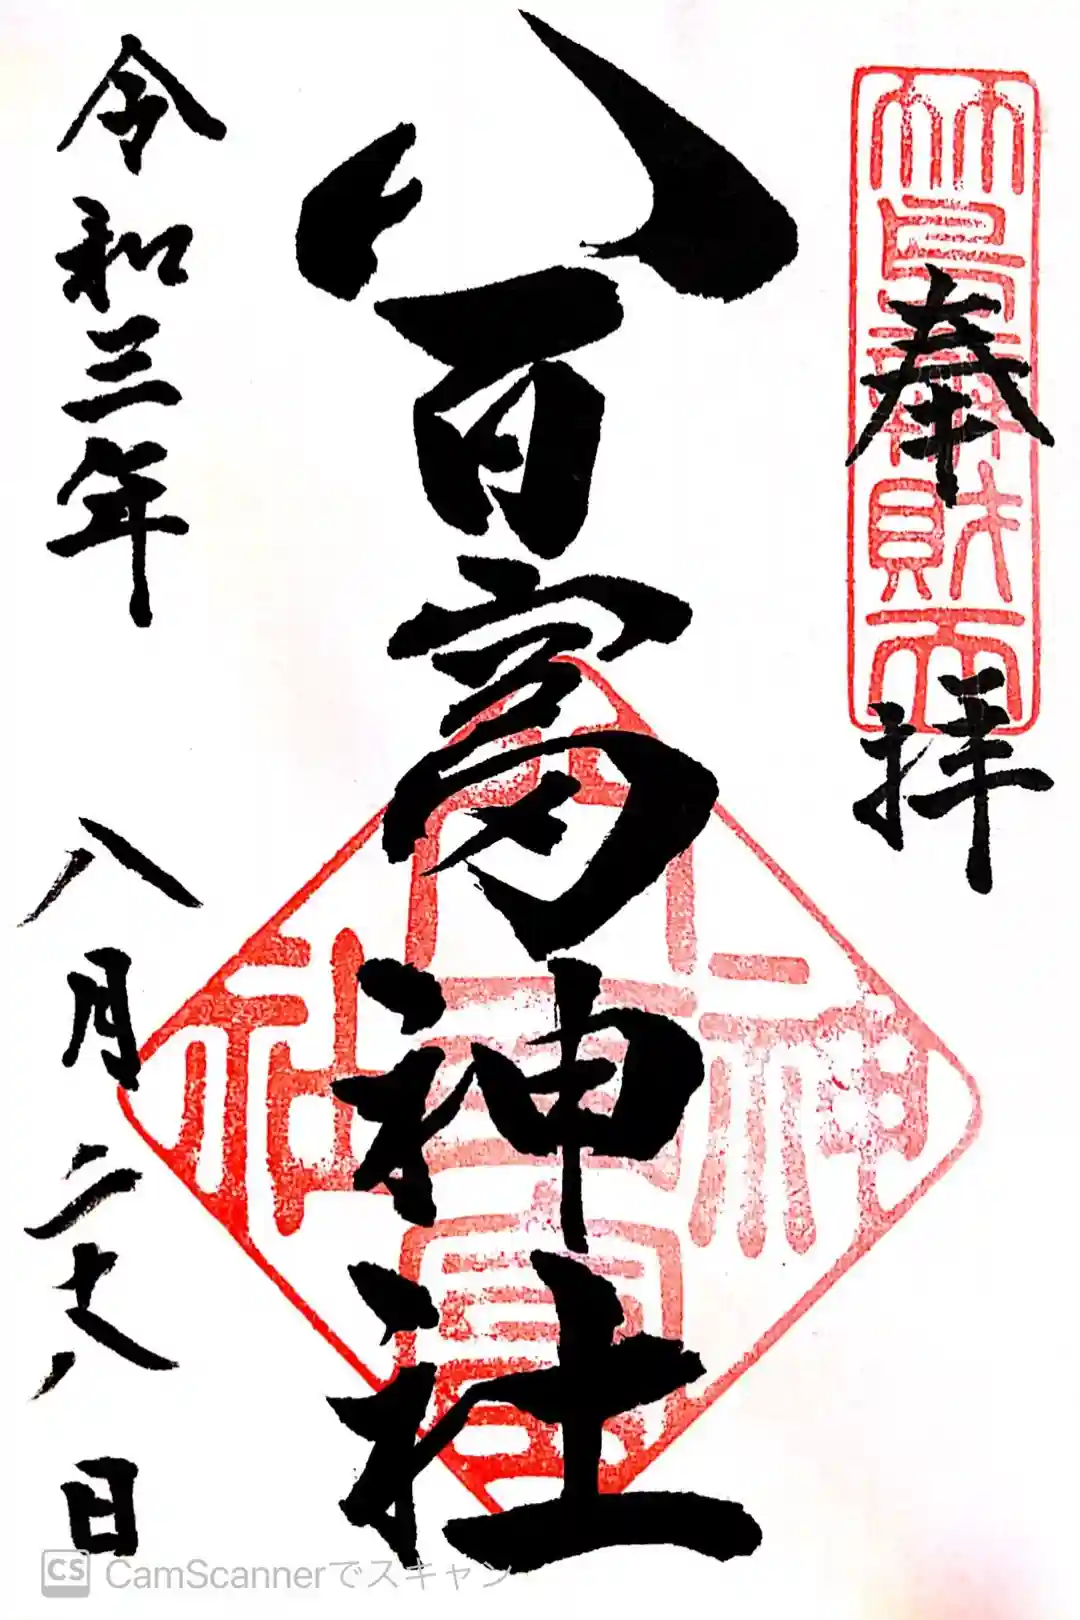 奉拝
竹島弁財天
八百富神社
八百富神社
令和三年 八月二十八日
CS CamScannerでスキャン